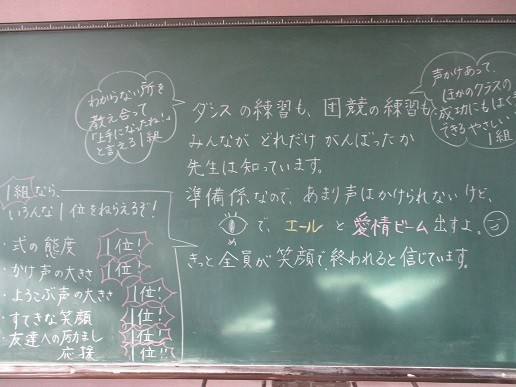 わからない所を
教え合って
「上手になったね!」
と言える1組
声かけあって、
ほかのクラスの
成功にもはく手
できるやさしい
1組
ダンスの練習も、団競の練習も
みんなが どれだけ がんばったか
先生は知っています。
準備係なので、あまり声はかけられないけど、
め
で、エールと愛情ビーム出すよ。
きっと全員が笑顔で、終われると信じています。
1組なら、
いろんな1位をねらえるぞ!
・式の態度 1位!
・かけ声の大きさ 1位!
・よろこぶ声の大きさ 1位!
・すてきな笑顔 1位!
・友達への励まし 1位!
応援 1位!!